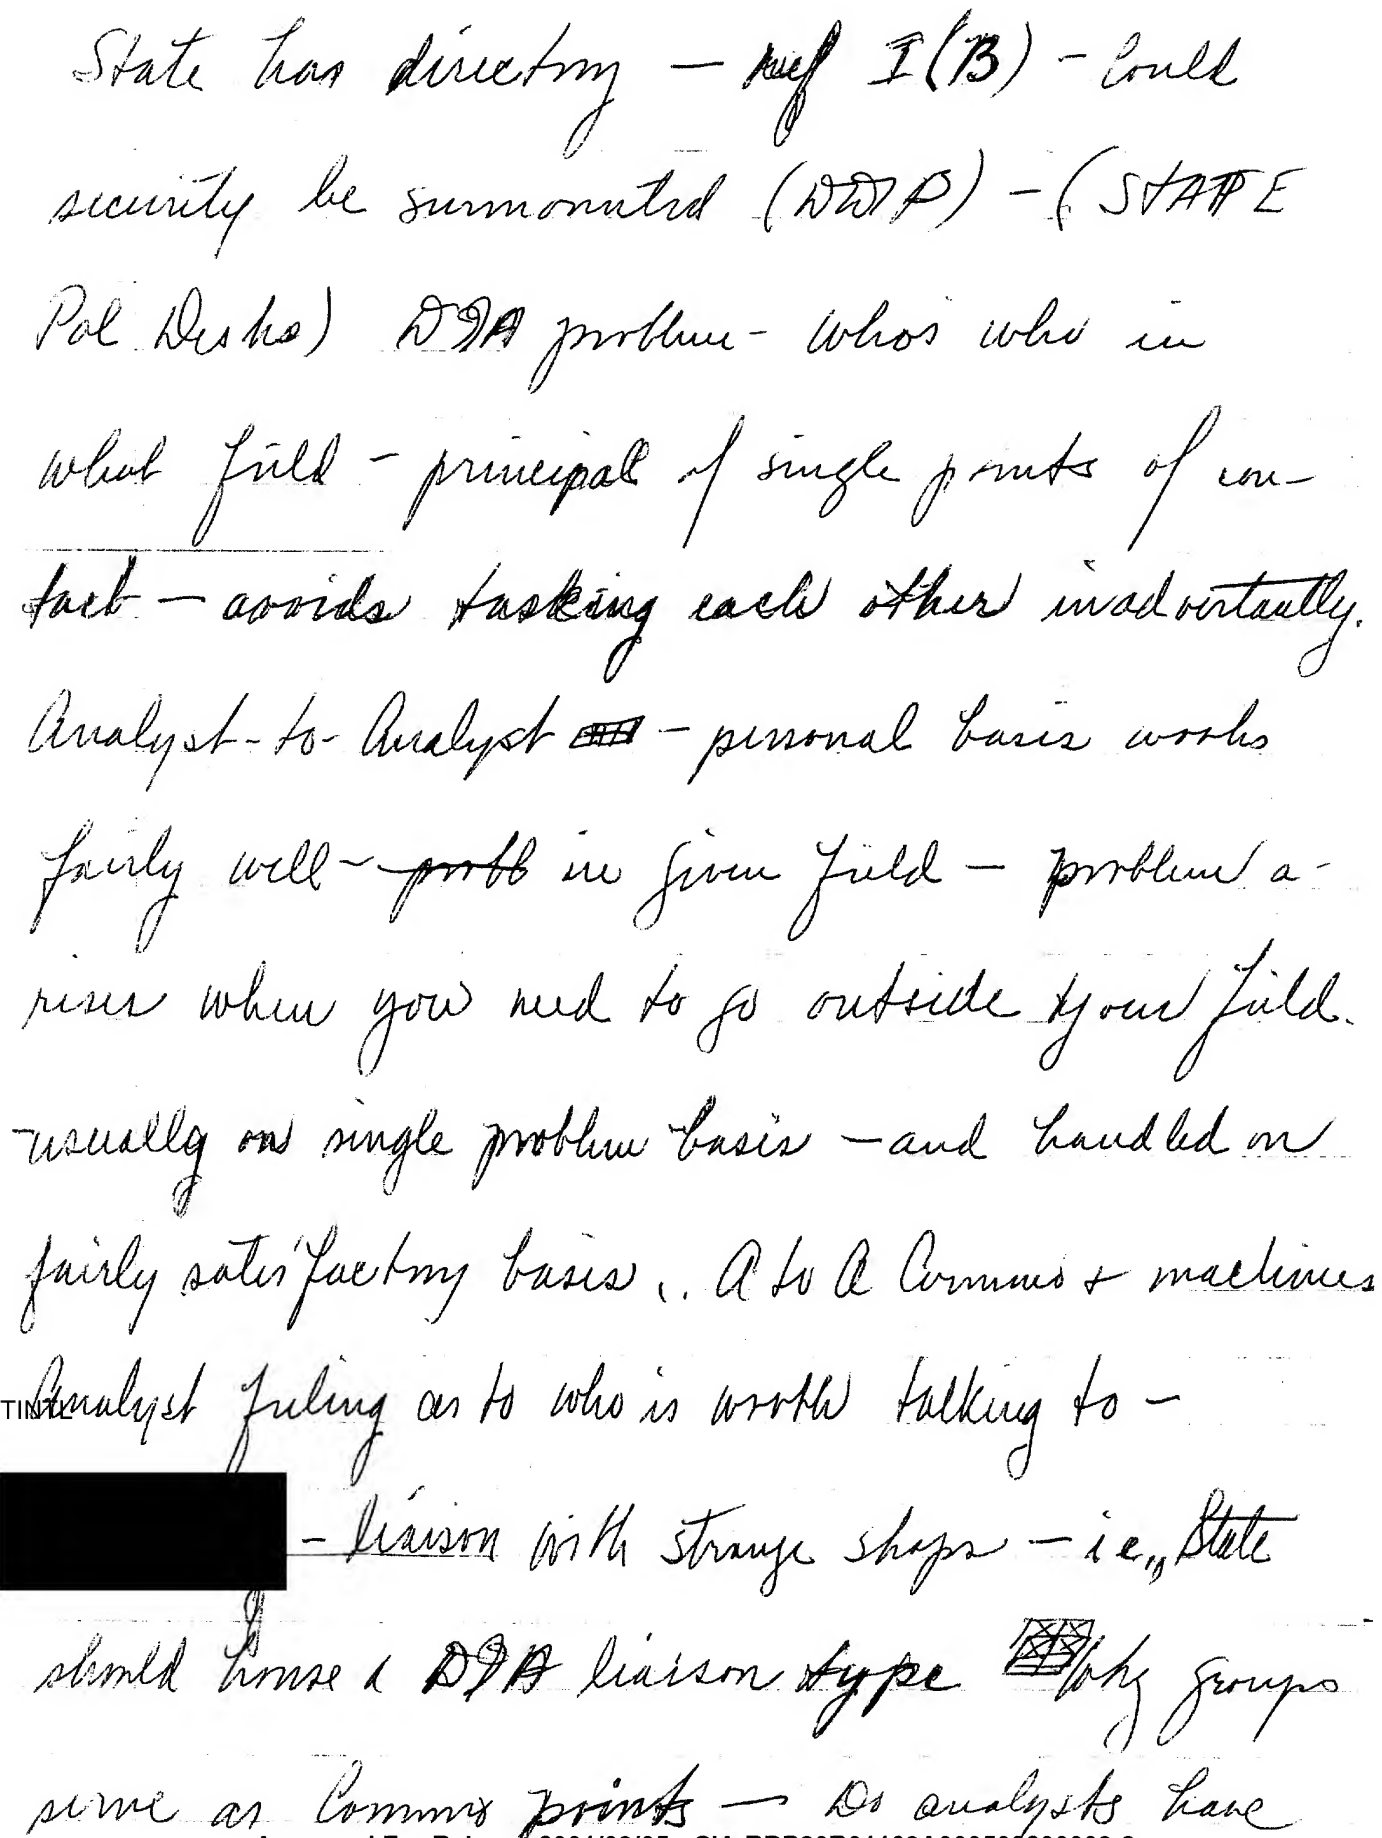 State has directory — ref I(B) - Could
security be surmounted (DDP) - (STATE
Pol Desks) DIA problem - Whos who in
what field - principal of single points of con-
tact — avoids tasking each other inadvertantly.
Analyst-to-Analyst — personal basis works
fairly well - prob in given field — problem a-
rises when you need to go outside your field.
-usually on single problem basis — and handled on
fairly satisfactory basis. A to A Commo & machines
Analyst feeling as to who is worth talking to -
- liaison with strange shops — ie., State
should house a DIA liaison type Wkg groups
serve as Commo points — Do analysts have